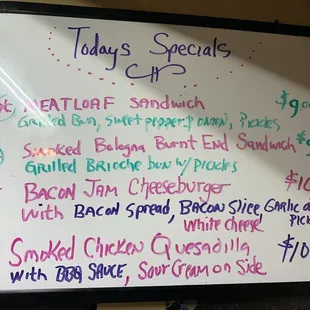 Todays Specials
MEATLOAF Sandwich $9.
Grilled Bun, Sweet pepper & onion, Pickles
Smoked Bologna Burnt End Sandwich $
Grilled Brioche bun w/ Pickles
BACON JAM Cheeseburger $10
with BACON Spread, BACON Slice, Garlic
White cheese
Smoked Chicken Quesadilla $10
with BBQ SAUCE, Sour Cream on Side